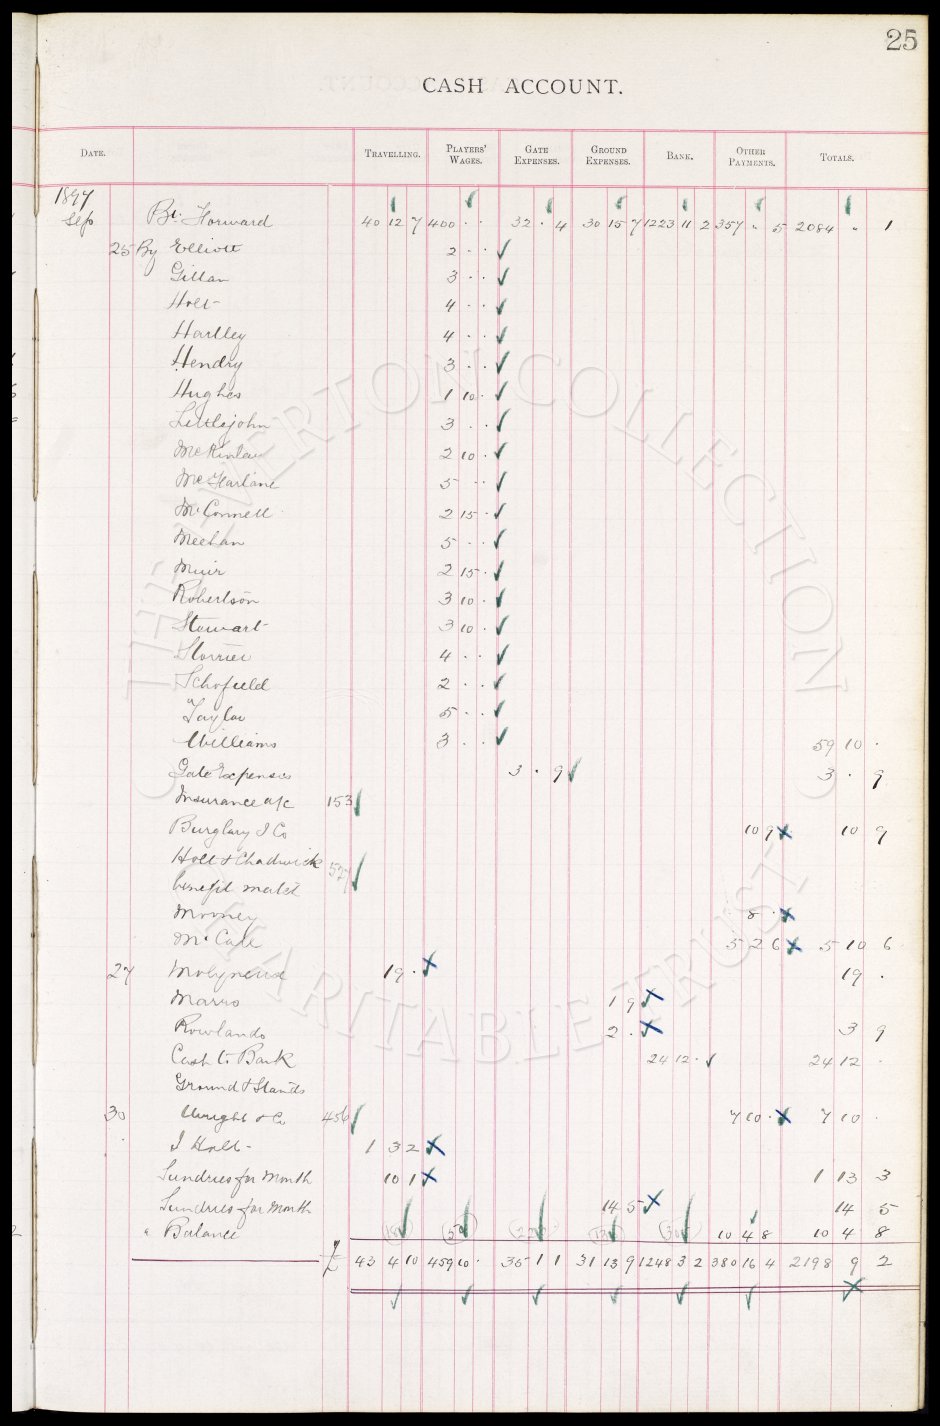 25
CASH ACCOUNT.
DATE. TRAVELLING. PLAYERS' WAGES. GATE EXPENSES. GROUND EXPENSES. BANK. OTHER PAYMENTS. TOTALS.
1897
Sep Bt. Forward 40 12 7 400 . . 32 . 4 30 15 7 1223 11 2 357 " 5 2084 " 1
25 By Elliott 2 . .
Gillan 3 . .
Holt 4 . .
Hartley 4 . .
Hendry 3 . .
Hughes 1 10 .
Littlejohn 3 . .
McKinlay 2 10 .
McFarlane 5 . .
McConnell 2 15 .
Meehan 5 . .
Muir 2 15 .
Robertson 3 10 .
Stewart 3 10 .
Storrier 4 . .
Schofield 2 . .
Taylor 5 . .
Williams 3 . . 59 10 .
Gate Expenses 3 . 9 3 . 9
Insurance a/c 153
Burglary I Co 10 9 10 9
Holt & Chadwick 57
benefit match
Mooney 8 .
McCall 5 2 6 5 10 6
27 Molyneux 19 . 19 .
Marrs 1 9
Rowlands 2 . 3 9
Cash to Bank 24 12 . 24 12 .
Ground & Stands
30 Wright & Co 456 7 10 . 7 10 .
J Holt 1 3 2
Sundries for Month 10 1 1 13 3
Sundries for Month 14 5 14 5
" Balance 10 4 8 10 4 8
£ 43 4 10 459 10 . 35 1 1 31 13 9 1248 3 2 380 16 4 2198 9 2
THE EVERTON COLLECTION
CHARITABLE TRUST